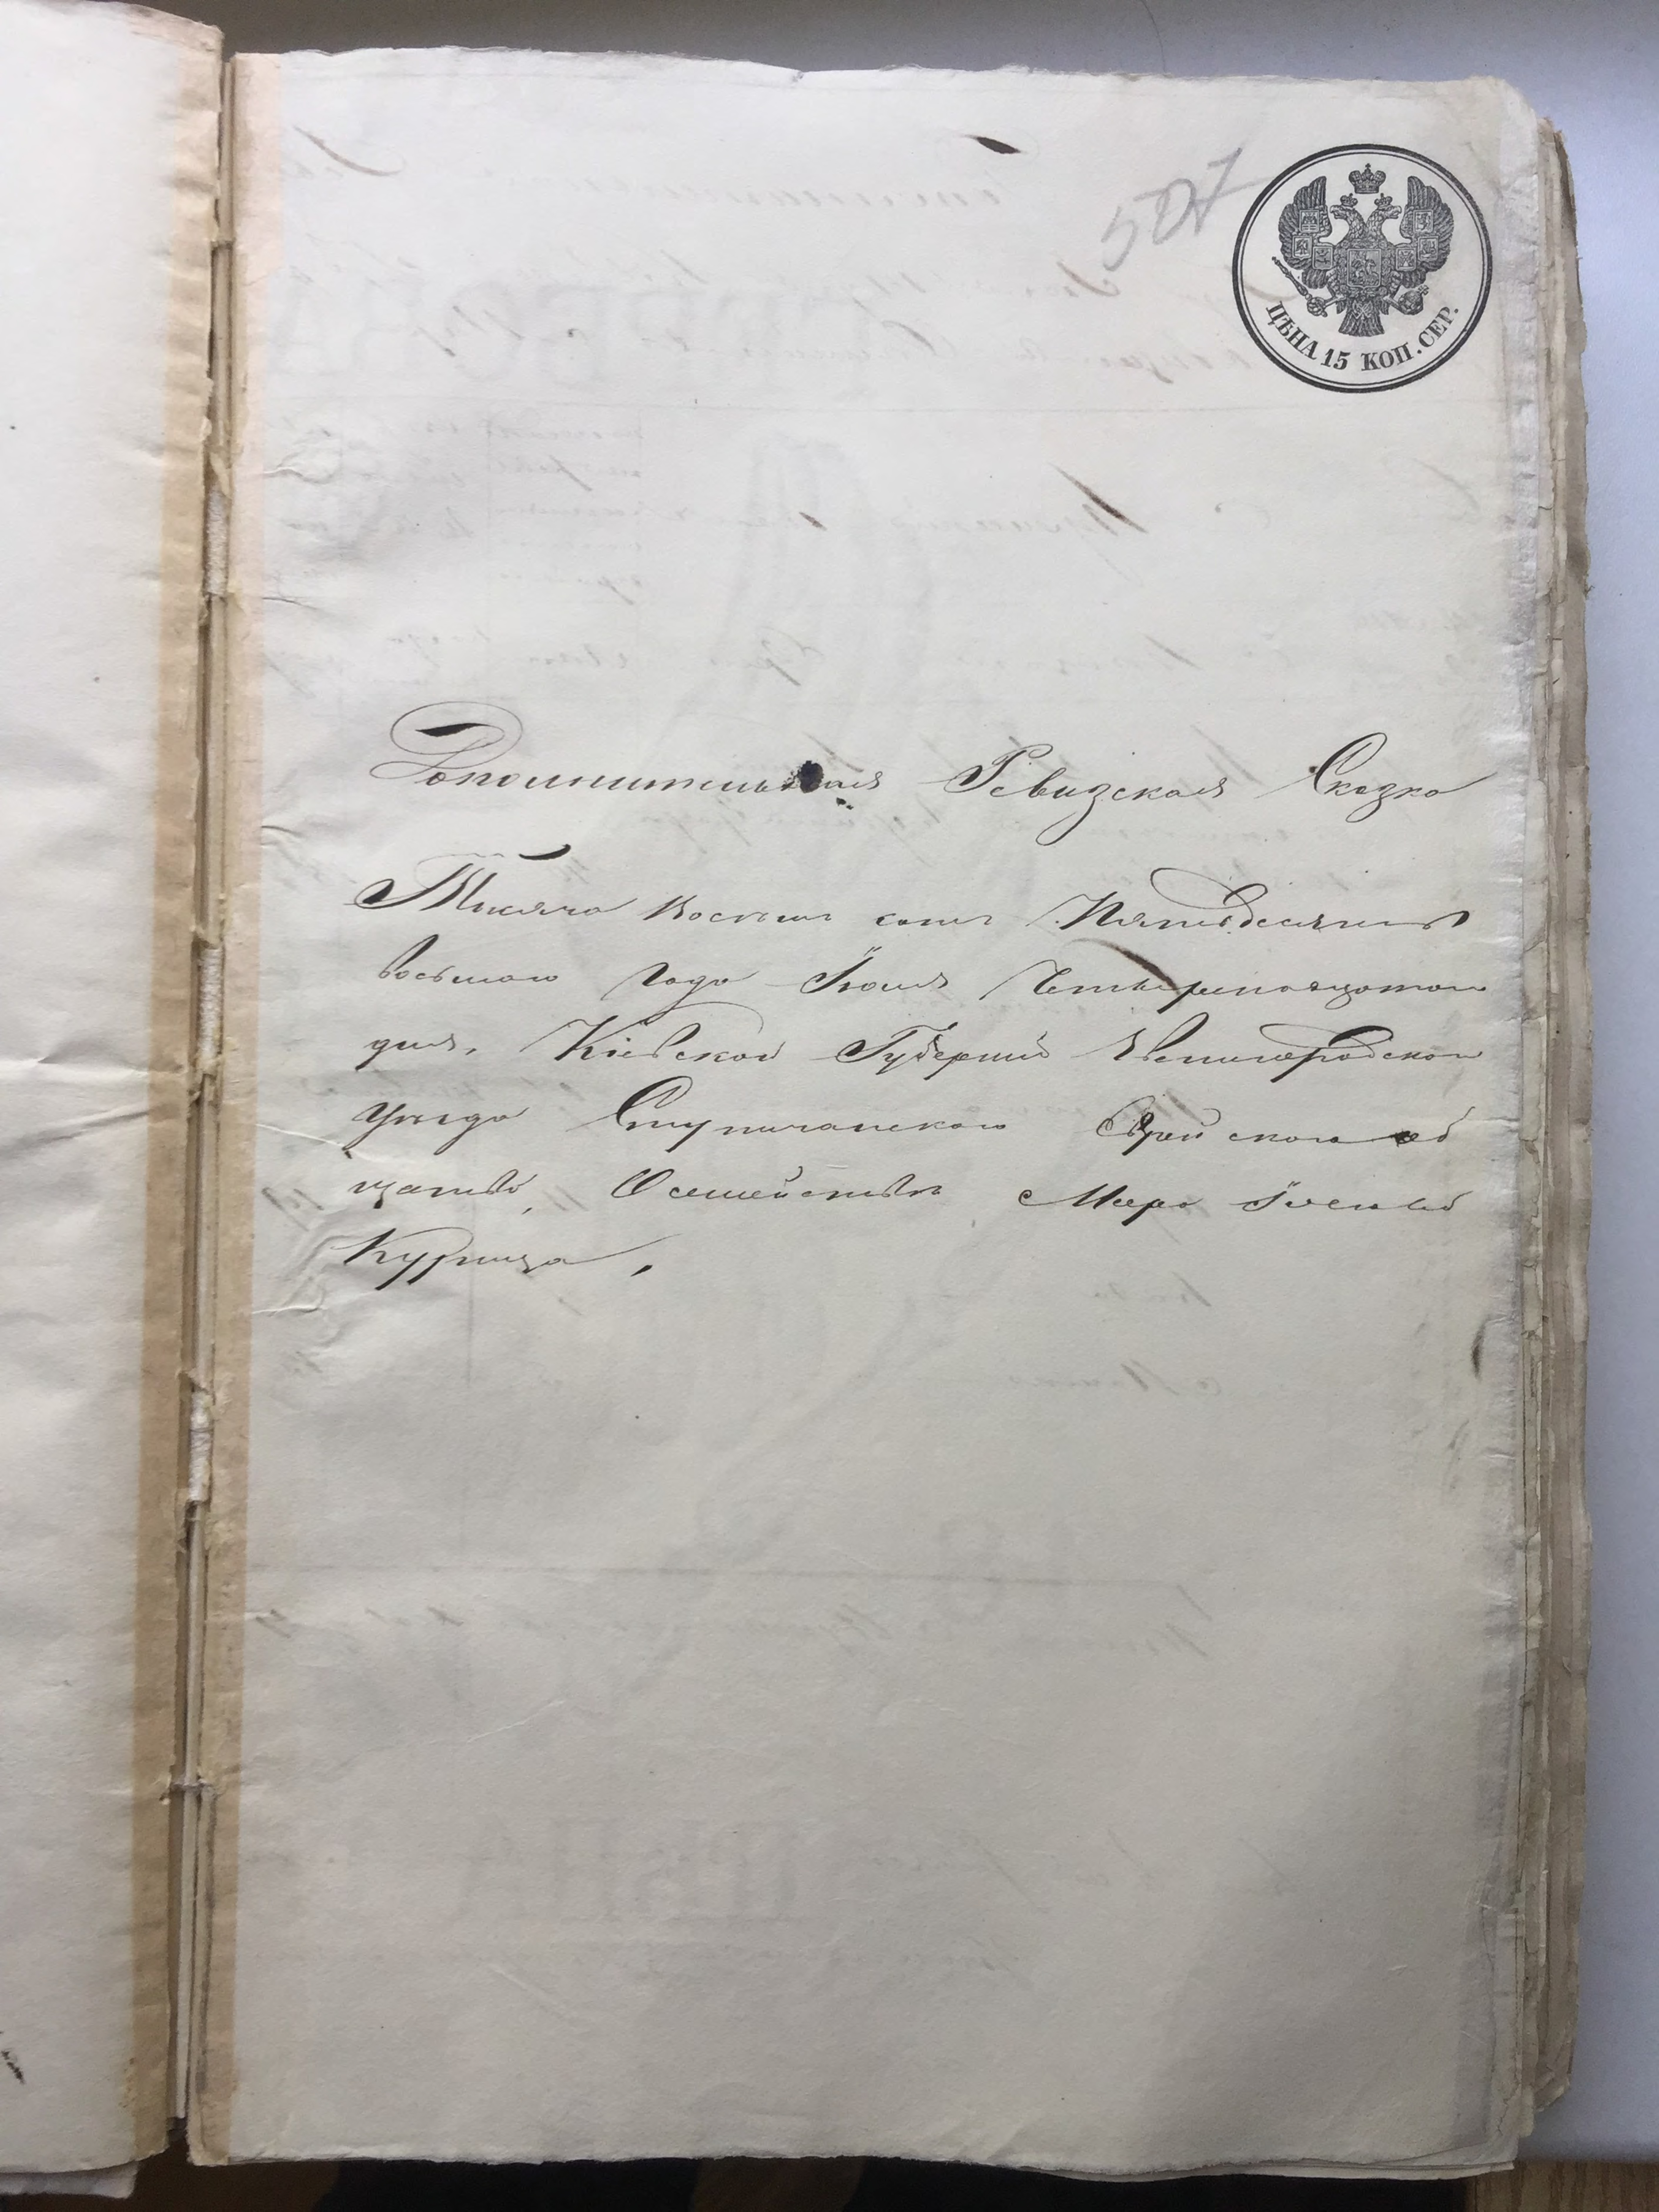 507
ЦѢНА 15 КОП. СЕР.
Дополнительная Ревизская Сказка
Тысяча восемь сотъ Пятьдесятъ
восьмаго года Іюня Четырнадцатого
дня, Кіевской Губерніи Звенигородского
уѣзда Ступичанского Еврейского об
щества, О семействѣ Меера
Курица,